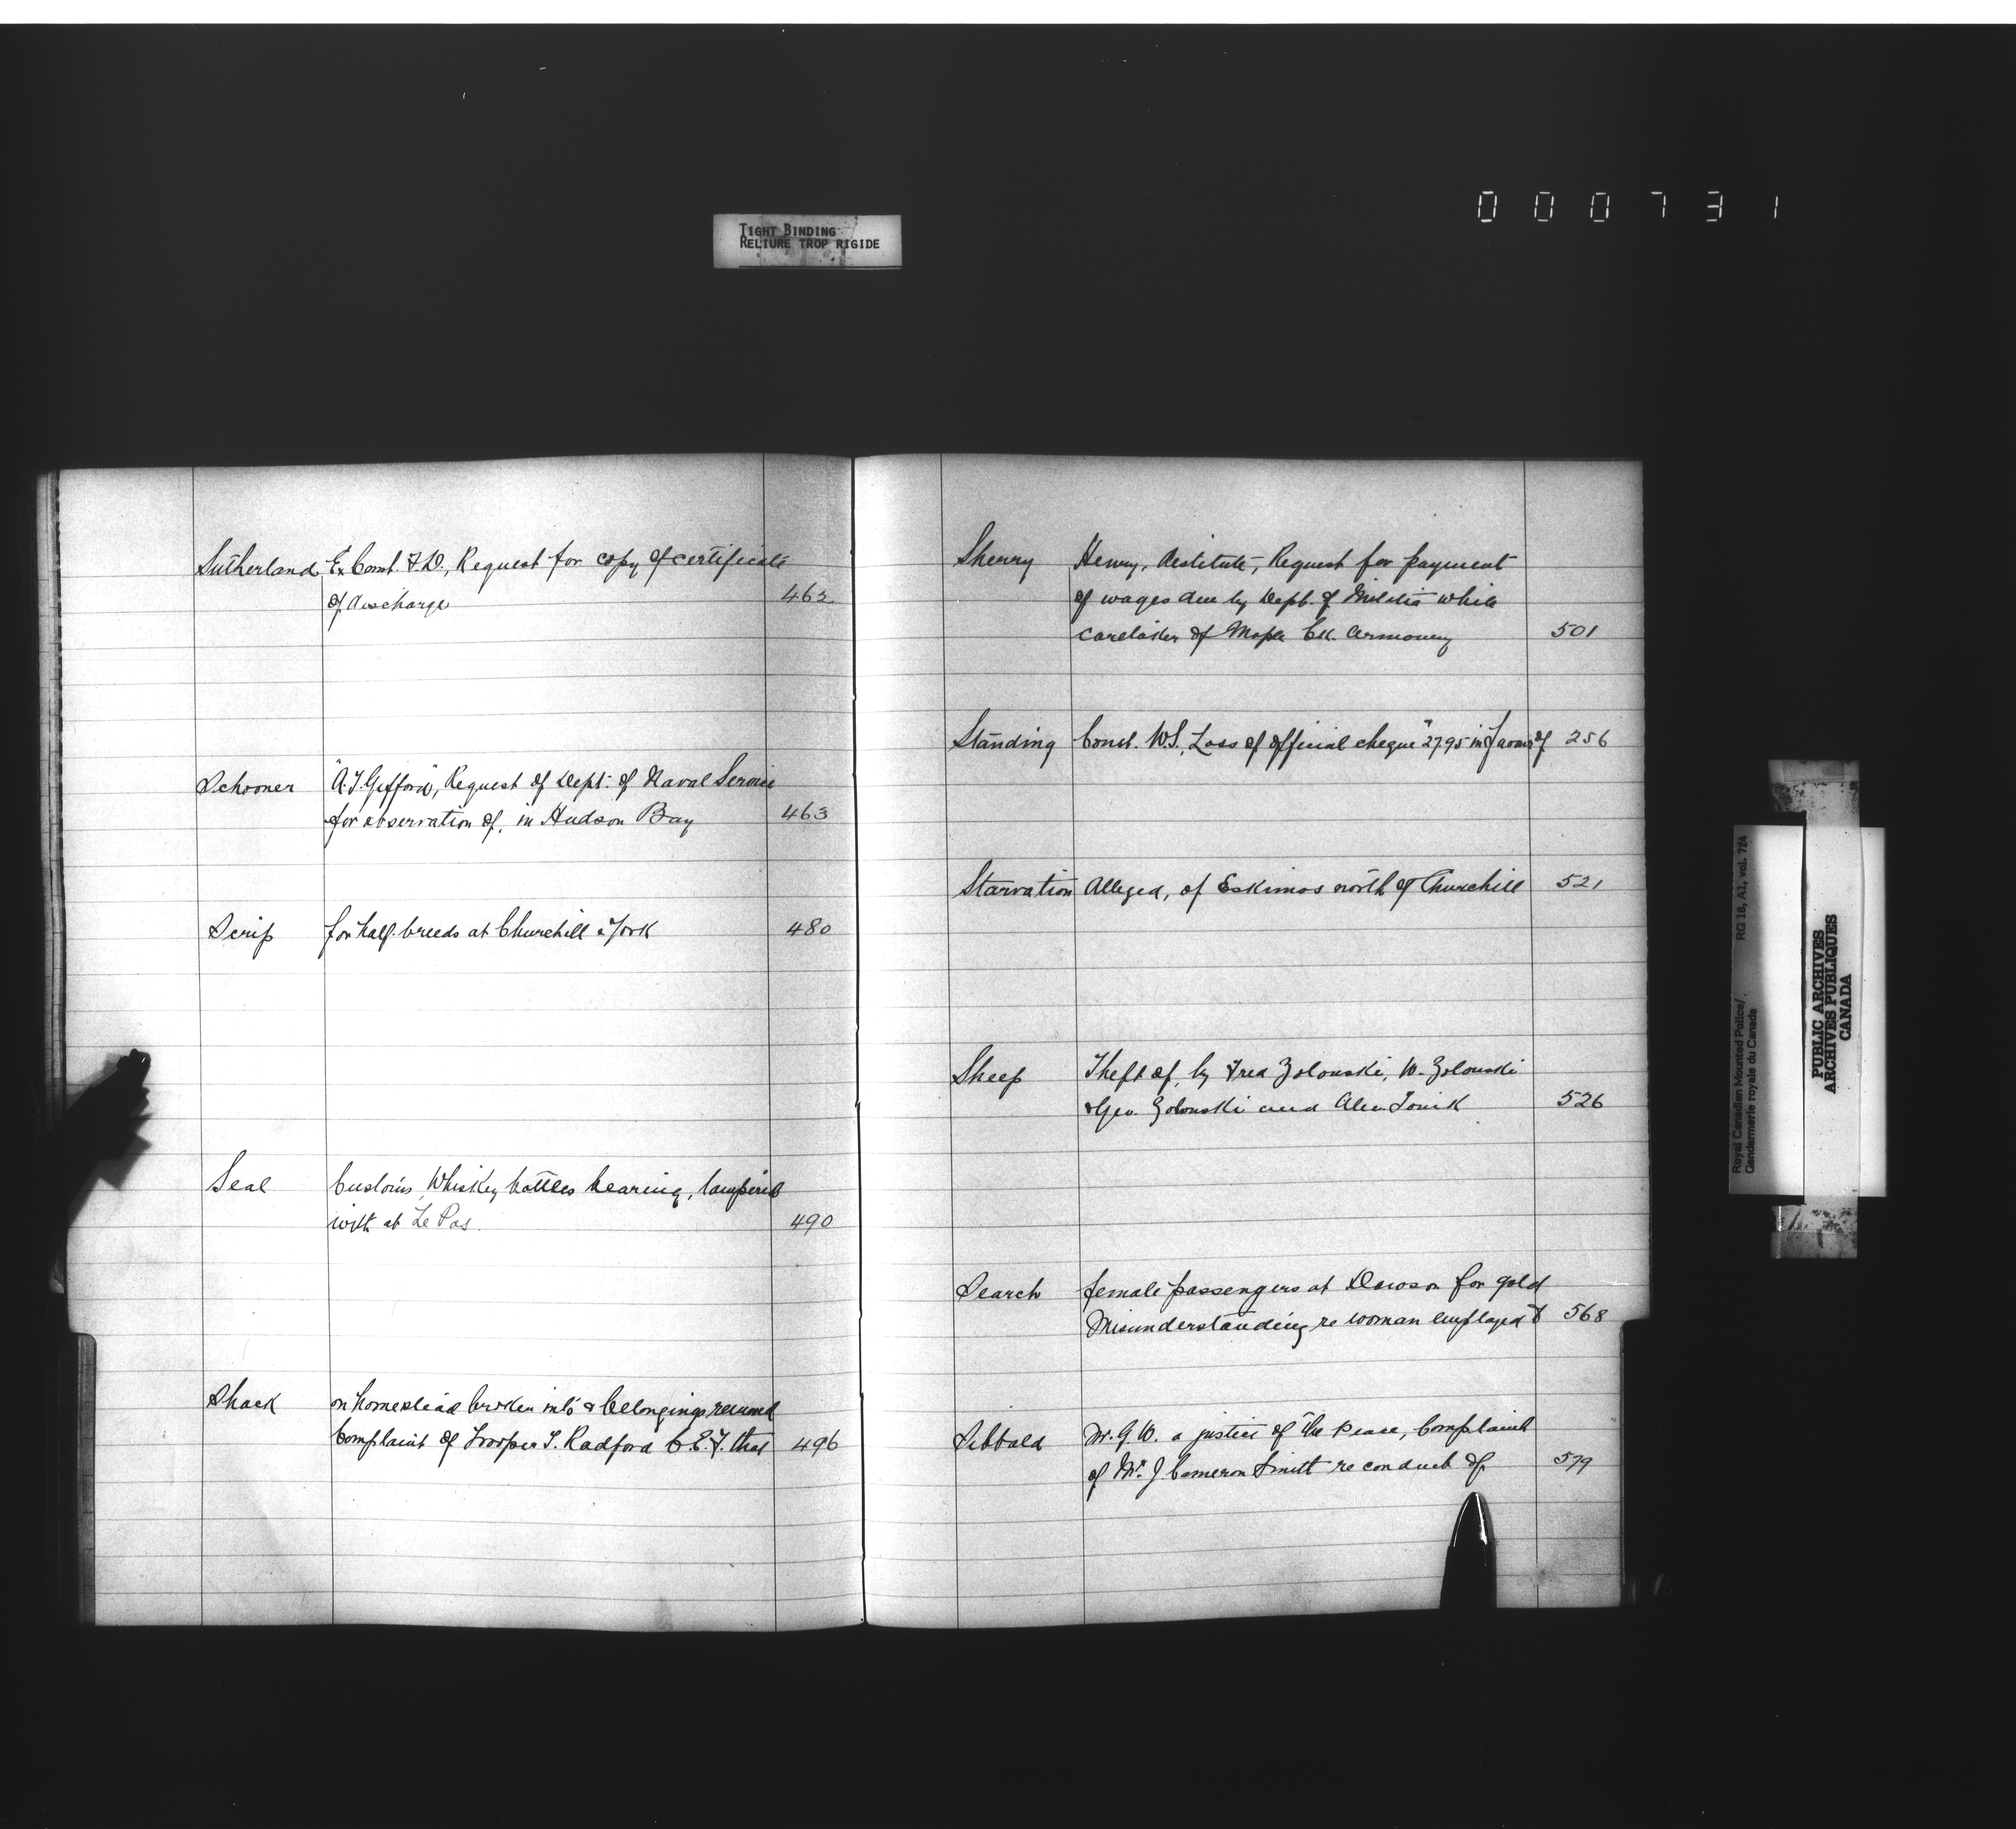 000731
TIGHT BINDING
RELIURE TROP RIGIDE
Sutherland Ex Const. F.D., Request for copy of certificate
of discharge 462
Schooner "A.T. Gifford", Request of Dept. of Naval Service
for observation of, in Hudson Bay 463
Scrip for half-breeds at Churchill & York 480
Seal Customs, Whiskey bottles bearing, tampered
with at Le Pas. 490
Shack on homestead broken into & belongings removed
Complaint of Trooper T. Radford C.E.F. that 496
Sherry Henry, destitute, Request for payment
of wages due by Dept. of Militia while
caretaker of Maple Ck. Armoury 501
Standing Const. W.S., Loss of official cheque 2795 in favour of 256
Starvation Alleged, of Eskimos north of Churchill 521
Sheep Theft of, by Fred Zolouski, W. Zolouski
& Geo. Zolouski and Alex 526
Search female passengers at Dawson for gold
Misunderstanding re woman employed to 568
Sibbald Mr. G.W. a justice of the peace, Complaint
of Mr. J. Cameron Smith re conduct of 579
Royal Canadian Mounted Police/ RG 18, A1, vol. 724
Gendarmerie royale du Canada
PUBLIC ARCHIVES
ARCHIVES PUBLIQUES
CANADA